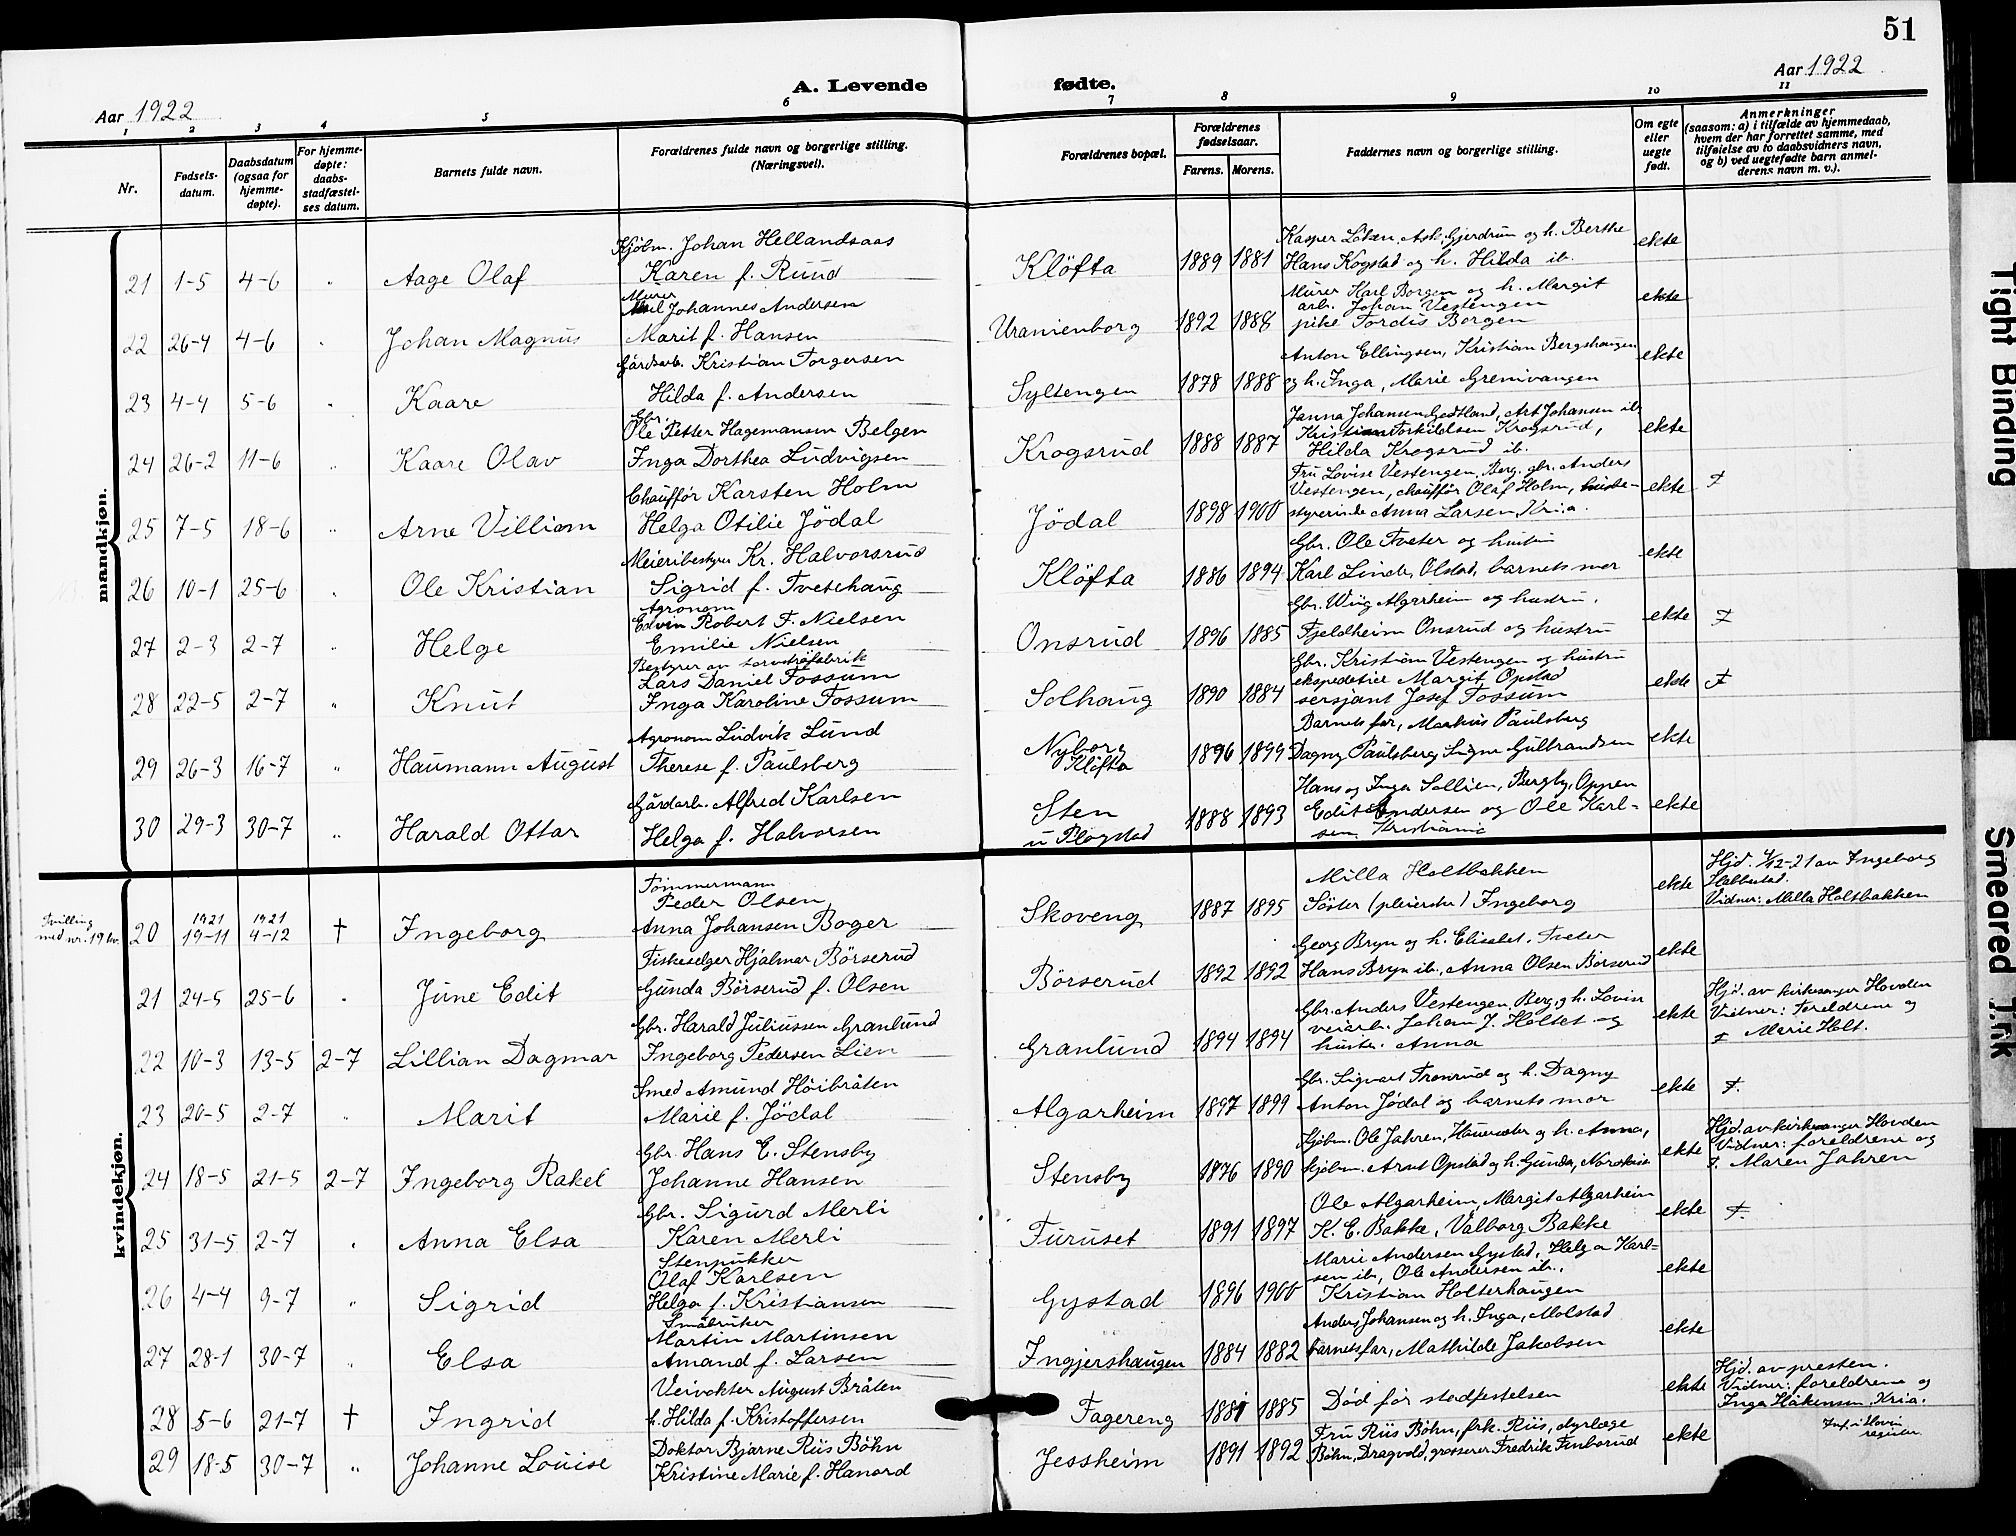 51
Aar 1922
A. Levende fødte.
Aar 1922
1 2 3 4 5 6 7 8 9 10 11
Nr.
Fødsels-
datum.
Daabsdatum
(ogsaa for
hjemme-
døpte).
For hjemme-
døpte:
daabs-
stadfæstel-
ses datum.
Barnets fulde navn.
Forældrenes fulde navn og borgerlige stilling.
(Næringsvei).
Forældrenes bopæl.
Forældrenes
fødselsaar.
Farens. Morens.
Faddernes navn og borgerlige stilling.
Om egte
eller
uegte
født.
Anmerkninger
(saasom: a) i tilfælde av hjemmedaab,
hvem der har forrettet samme, med
tilføielse av to daabsvidners navn,
og b) ved uegtefødte barn anmel-
derens navn m. v.).
mandkjøn.
Kjøbm. Johan Hellandsaas
21 1-5 4-6 " Aage Olaf Karen f. Ruud Kløfta 1889 1881
Kasper Løken, Ask, Gjerdrum og h. Berthe
Hans Kogstad og h. Hilda ib. ekte
Murer
Johannes Andersen
22 26-4 4-6 " Johan Magnus Marit f. Hansen Uranienborg 1892 1888
Murer Karl Borgen og h. Margit
arb. Johan Vestengen
pike Tordis Borgen ekte
Gårdsarb. Kristian Torgersen
23 4-4 5-6 " Kaare Hilda f. Andersen Syltengen 1878 1888
Anton Ellingsen, Kristian Bergshaugen
og h. Inga, Marie Grenivangen ekte
Gbr.
Ole Petter Hagemansen Belgen
24 26-2 11-6 " Kaare Olav Inga Dorthea Ludvigsen Krogsrud 1888 1887
Janna Johansen Gedtland, Art Johansen ib.
Kristian Torkildsen Krogsrud,
Hilda Krogsrud ib. ekte
Chauffør Karsten Holm
25 7-5 18-6 " Arne Villiam Helga Otilie Jødal Jødal 1898 1900
Fru Lovise Vestengen, Berg, gbr. Anders
Vestengen, chauffør Olaf Holm,
styrerinde Anna Larsen, Kr.ia. ekte F
Meieribestyrer Kr. Halvorsrud
26 10-1 25-6 " Ole Kristian Sigrid f. Tvetehaug Kløfta 1886 1894
Gbr. Ole Tveter og hustru
Karl Linde, Olstad, barnets mor ekte
Agronom
Edvin Robert F. Nielsen
27 2-3 2-7 " Helge Emilie Nielsen Onsrud 1896 1885
Gbr. Wiig Algarheim og hustru.
Fjeldheim Onsrud og hustru ekte F
Bestyrer av torvstrøfabrik
Lars Daniel Fossum
28 22-5 2-7 " Knut Inga Karoline Fossum Solhaug 1890 1884
Gbr. Kristian Vestengen og hustru
ekspeditrice Margit Opstad
sersjant Josef Fossum ekte F
Agronom Ludvik Lund
29 26-3 16-7 " Haumann August Therese f. Paulsberg Nyborg
Kløfta 1896 1899
Barnets far, Markus Paulsberg
Dagny Paulsberg, Signe Gulbrandsen ekte
Gårdarb. Alfred Karlsen
30 29-3 30-7 " Harald Ottar Helga f. Halvorsen Sten
u Plogstad 1888 1893
Hans og Inga Sollien, Bergby, Oppen
Edit Andersen og Ole Karl-
sen Kristiania ekte
kvindekjøn.
Tvilling
med nr. 19 kv.
Tømmermann
Peder Olsen
20 1921 19-11 1921 4-12 † Ingeborg Anna Johansen Boger Skoveng 1887 1895
Milla Holtbakken
Søster (pleierske) Ingeborg ekte
Hjd. 4/12-21 av Ingeborg
Vidner: Milla Holtbakken
Fiskeselger Hjalmar Børserud
21 24-5 25-6 " June Edit Gunda Børserud f. Olsen Børserud 1892 1892
Georg Bryn og h. Elisabet, Tveter
Hans Bryn ib., Anna Olsen Børserud ekte
Gbr. Harald Juliussen Granlund
22 10-3 13-5 2-7 Lillian Dagmar Ingeborg Pedersen Lien Granlund 1894 1894
Gbr. Anders Vestengen, Berg, og h. Lovise
veiarb. Johan J. Holtet og
hustr. Anna ekte
Hjd. av kirkesanger Hovden
Vidner: Foreldrene og
F Marie Holt.
Smed Amund Høibråten
23 20-5 2-7 " Marit Marie f. Jødal Algarheim 1897 1899
Gbr. Sigvart Tronrud og h. Dagny
Anton Jødal og barnets mor ekte F.
Gbr. Hans E. Stensby
24 18-5 21-5 2-7 Ingeborg Rakel Johanne Hansen Stensby 1876 1890
Kjøbm. Ole Jahren, Hauersæter og h. Anna,
kjøbm. Arnt Opstad og h. Gunda, Nordkisa ekte
Hjd. av kirkesanger Hovden
Vidner: foreldrene og
F. Maren Jahren
Gbr. Sigurd Merli
25 31-5 2-7 " Anna Elsa Karen Merli Furuset 1891 1897
Ole Algarheim, Margit Algarheim
K. E. Bakke, Valborg Bakke ekte F.
Stenpukker
Olaf Karlsen
26 4-4 9-7 " Sigrid Helga f. Kristiansen Gystad 1896 1900
Marie Andersen Gystad, Helga Karl-
sen ib., Ole Andersen ib.,
Kristian Holterhaugen ekte
Småbruker
Martin Martinsen
27 28-1 30-7 " Elsa Amanda f. Larsen Ingjershaugen 1884 1882
Anders Johansen og h. Inga, Molstad
barnets far, Mathilde Jakobsen ekte
Veivokter August Bråten
28 5-6 21-7 † Ingrid h. Hilda f. Kristoffersen Fagereng 1881 1885
Død før stadfestelsen ekte
Hjd. av presten.
Vidner: foreldrene og
Inga Håkensen, Kr.ia.
Doktor Bjarne Riis Bøhn
29 18-5 30-7 " Johanne Louise Kristine Marie f. Hanord Jessheim 1891 1892
Fru Riis Bøhn, frk. Riis, dyrlæge
Bøhn, Dragvold, grosserer Fredrik Finborud ekte
Inf. i Hovin
register
Tight Binding
Smeared Ink